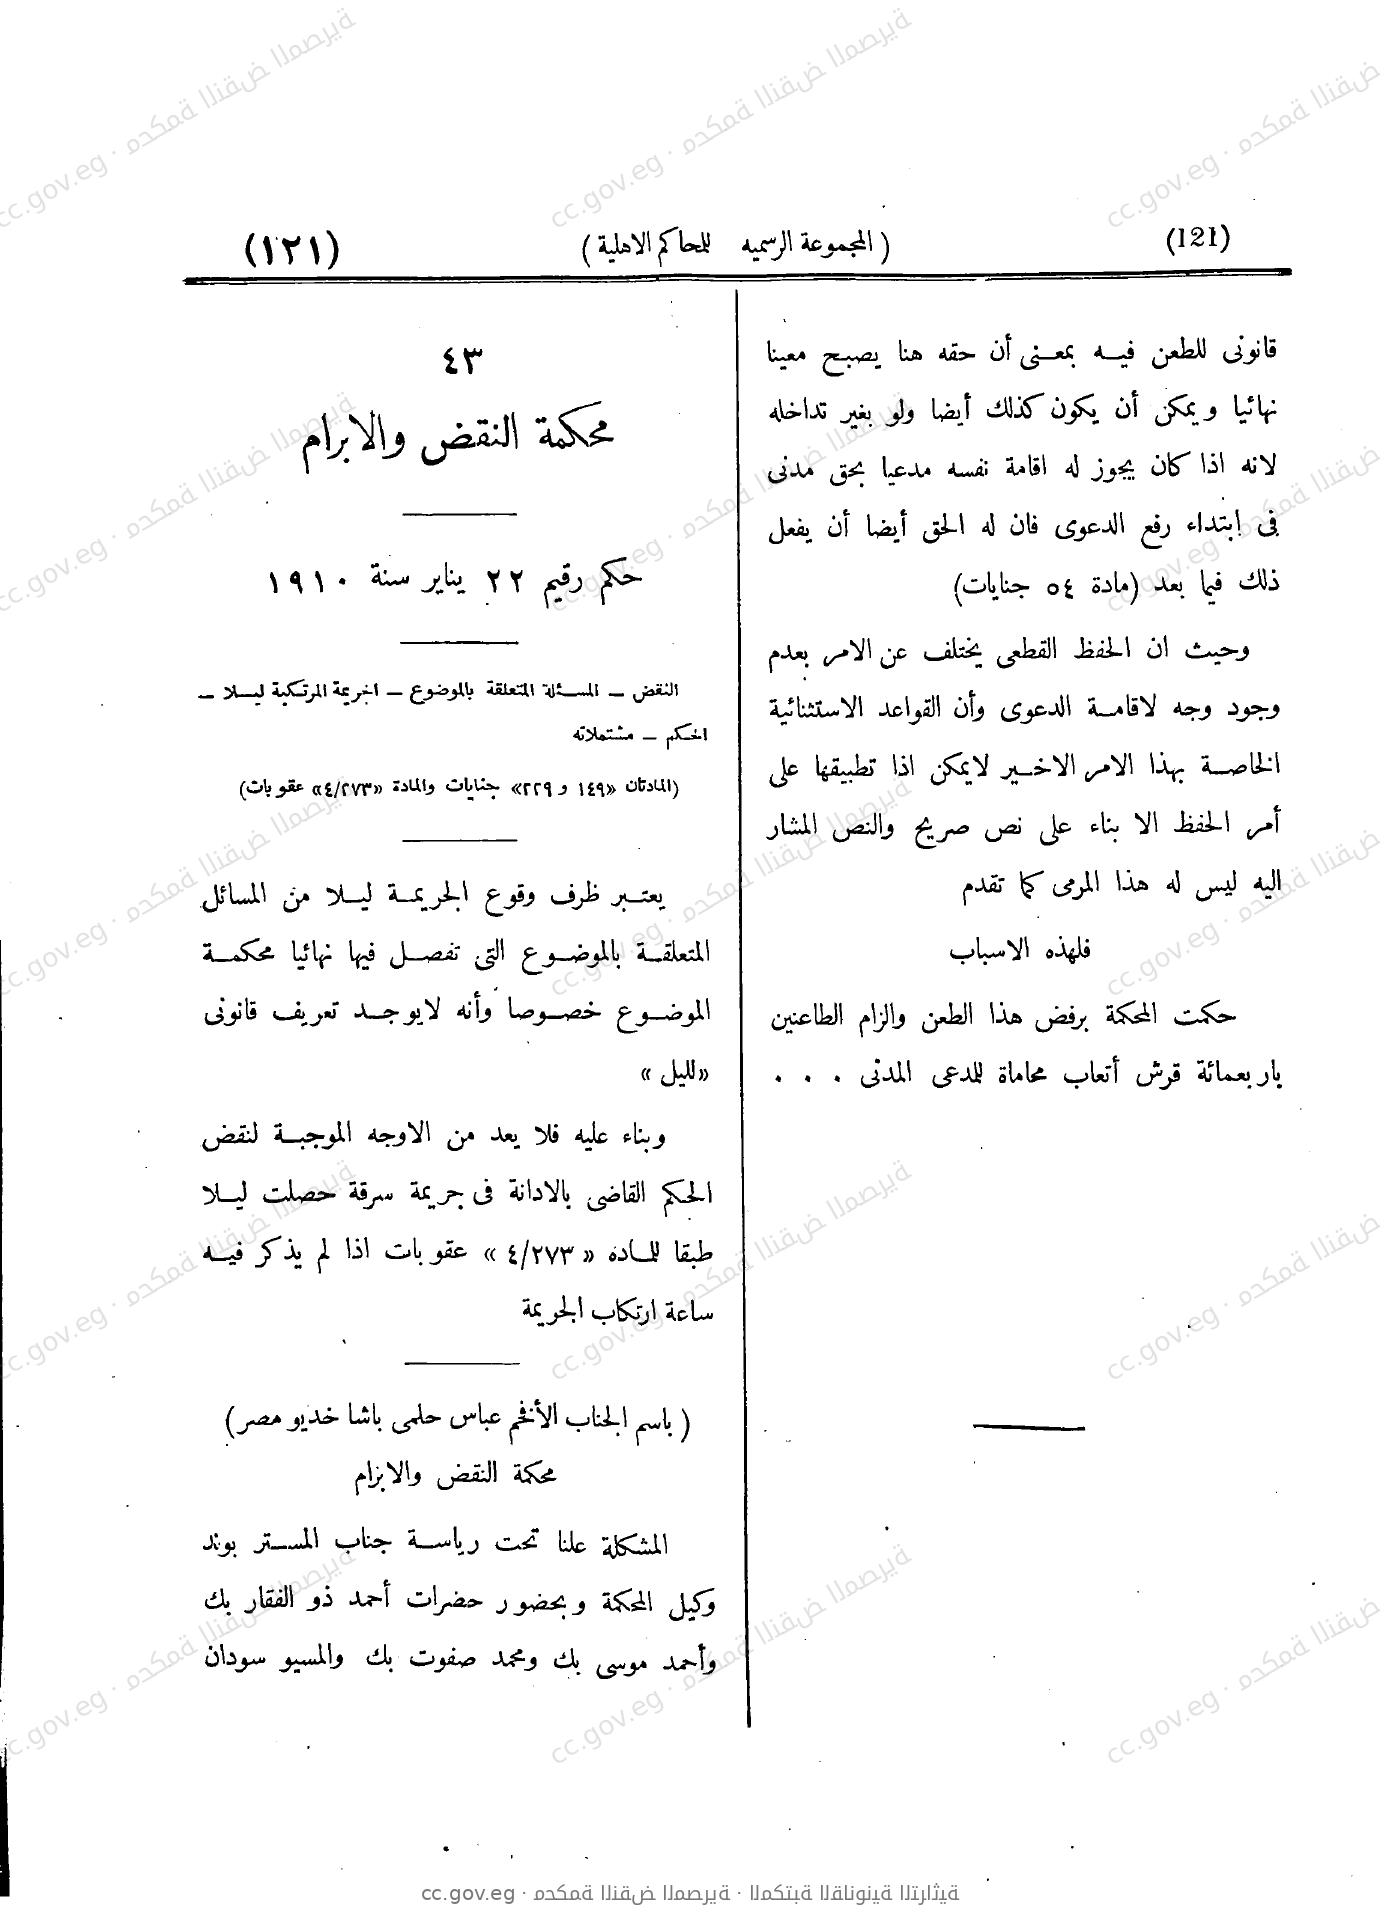 (121) ( المجموعة الرسميه للمحاكم الاهلية ) (١٢١)
قانونى للطعن فيه بمعنى أن حقه هنا يصبح معينا
نهائيا ويمكن أن يكون كذلك أيضا ولو بغير تداخله
لانه اذا كان يجوز له اقامة نفسه مدعيا بحق مدنى
فى إبتداء رفع الدعوى فان له الحق أيضا أن يفعل
ذلك فيما بعد (مادة ٥٤ جنايات)
وحيث ان الحفظ القطعى يختلف عن الامر بعدم
وجود وجه لاقامة الدعوى وأن القواعد الاستثنائية
الخاصة بهذا الامر الاخير لايمكن اذا تطبيقها على
أمر الحفظ الا بناء على نص صريح والنص المشار
اليه ليس له هذا المرمى كما تقدم
فلهذه الاسباب
حكمت المحكمة برفض هذا الطعن والزام الطاعنين
باربعمائة قرش أتعاب محاماة للمدعى المدنى . . .
٤٣
محكمة النقض والابرام
حكم رقيم ٢٢ يناير سنة ١٩١٠
النقض – المسئلة المتعلقة بالموضوع – الجريمة المرتكبة ليلا –
الحكم – مشتملاته
(المادتان «١٤٩ و ٢٢٩» جنايات والمادة «٤/٢٧٣» عقوبات)
يعتبر ظرف وقوع الجريمة ليلا من المسائل
المتعلقة بالموضوع التى تفصل فيها نهائيا محكمة
الموضوع خصوصا وأنه لايوجد تعريف قانونى
«لليل»
وبناء عليه فلا يعد من الاوجه الموجبة لنقض
الحكم القاضى بالادانة فى جريمة سرقة حصلت ليلا
طبقا للماده « ٤/٢٧٣ » عقوبات اذا لم يذكر فيه
ساعة ارتكاب الجريمة
( باسم الجناب الأفخم عباس حلمى باشا خديو مصر)
محكمة النقض والابرام
المشكلة علنا تحت رياسة جناب المستر بوند
وكيل المحكمة وبحضور حضرات أحمد ذو الفقار بك
وأحمد موسى بك ومحمد صفوت بك والمسيو سودان
cc.gov.eg · محكمة النقض المصرية · المكتبة القانونية التراثية